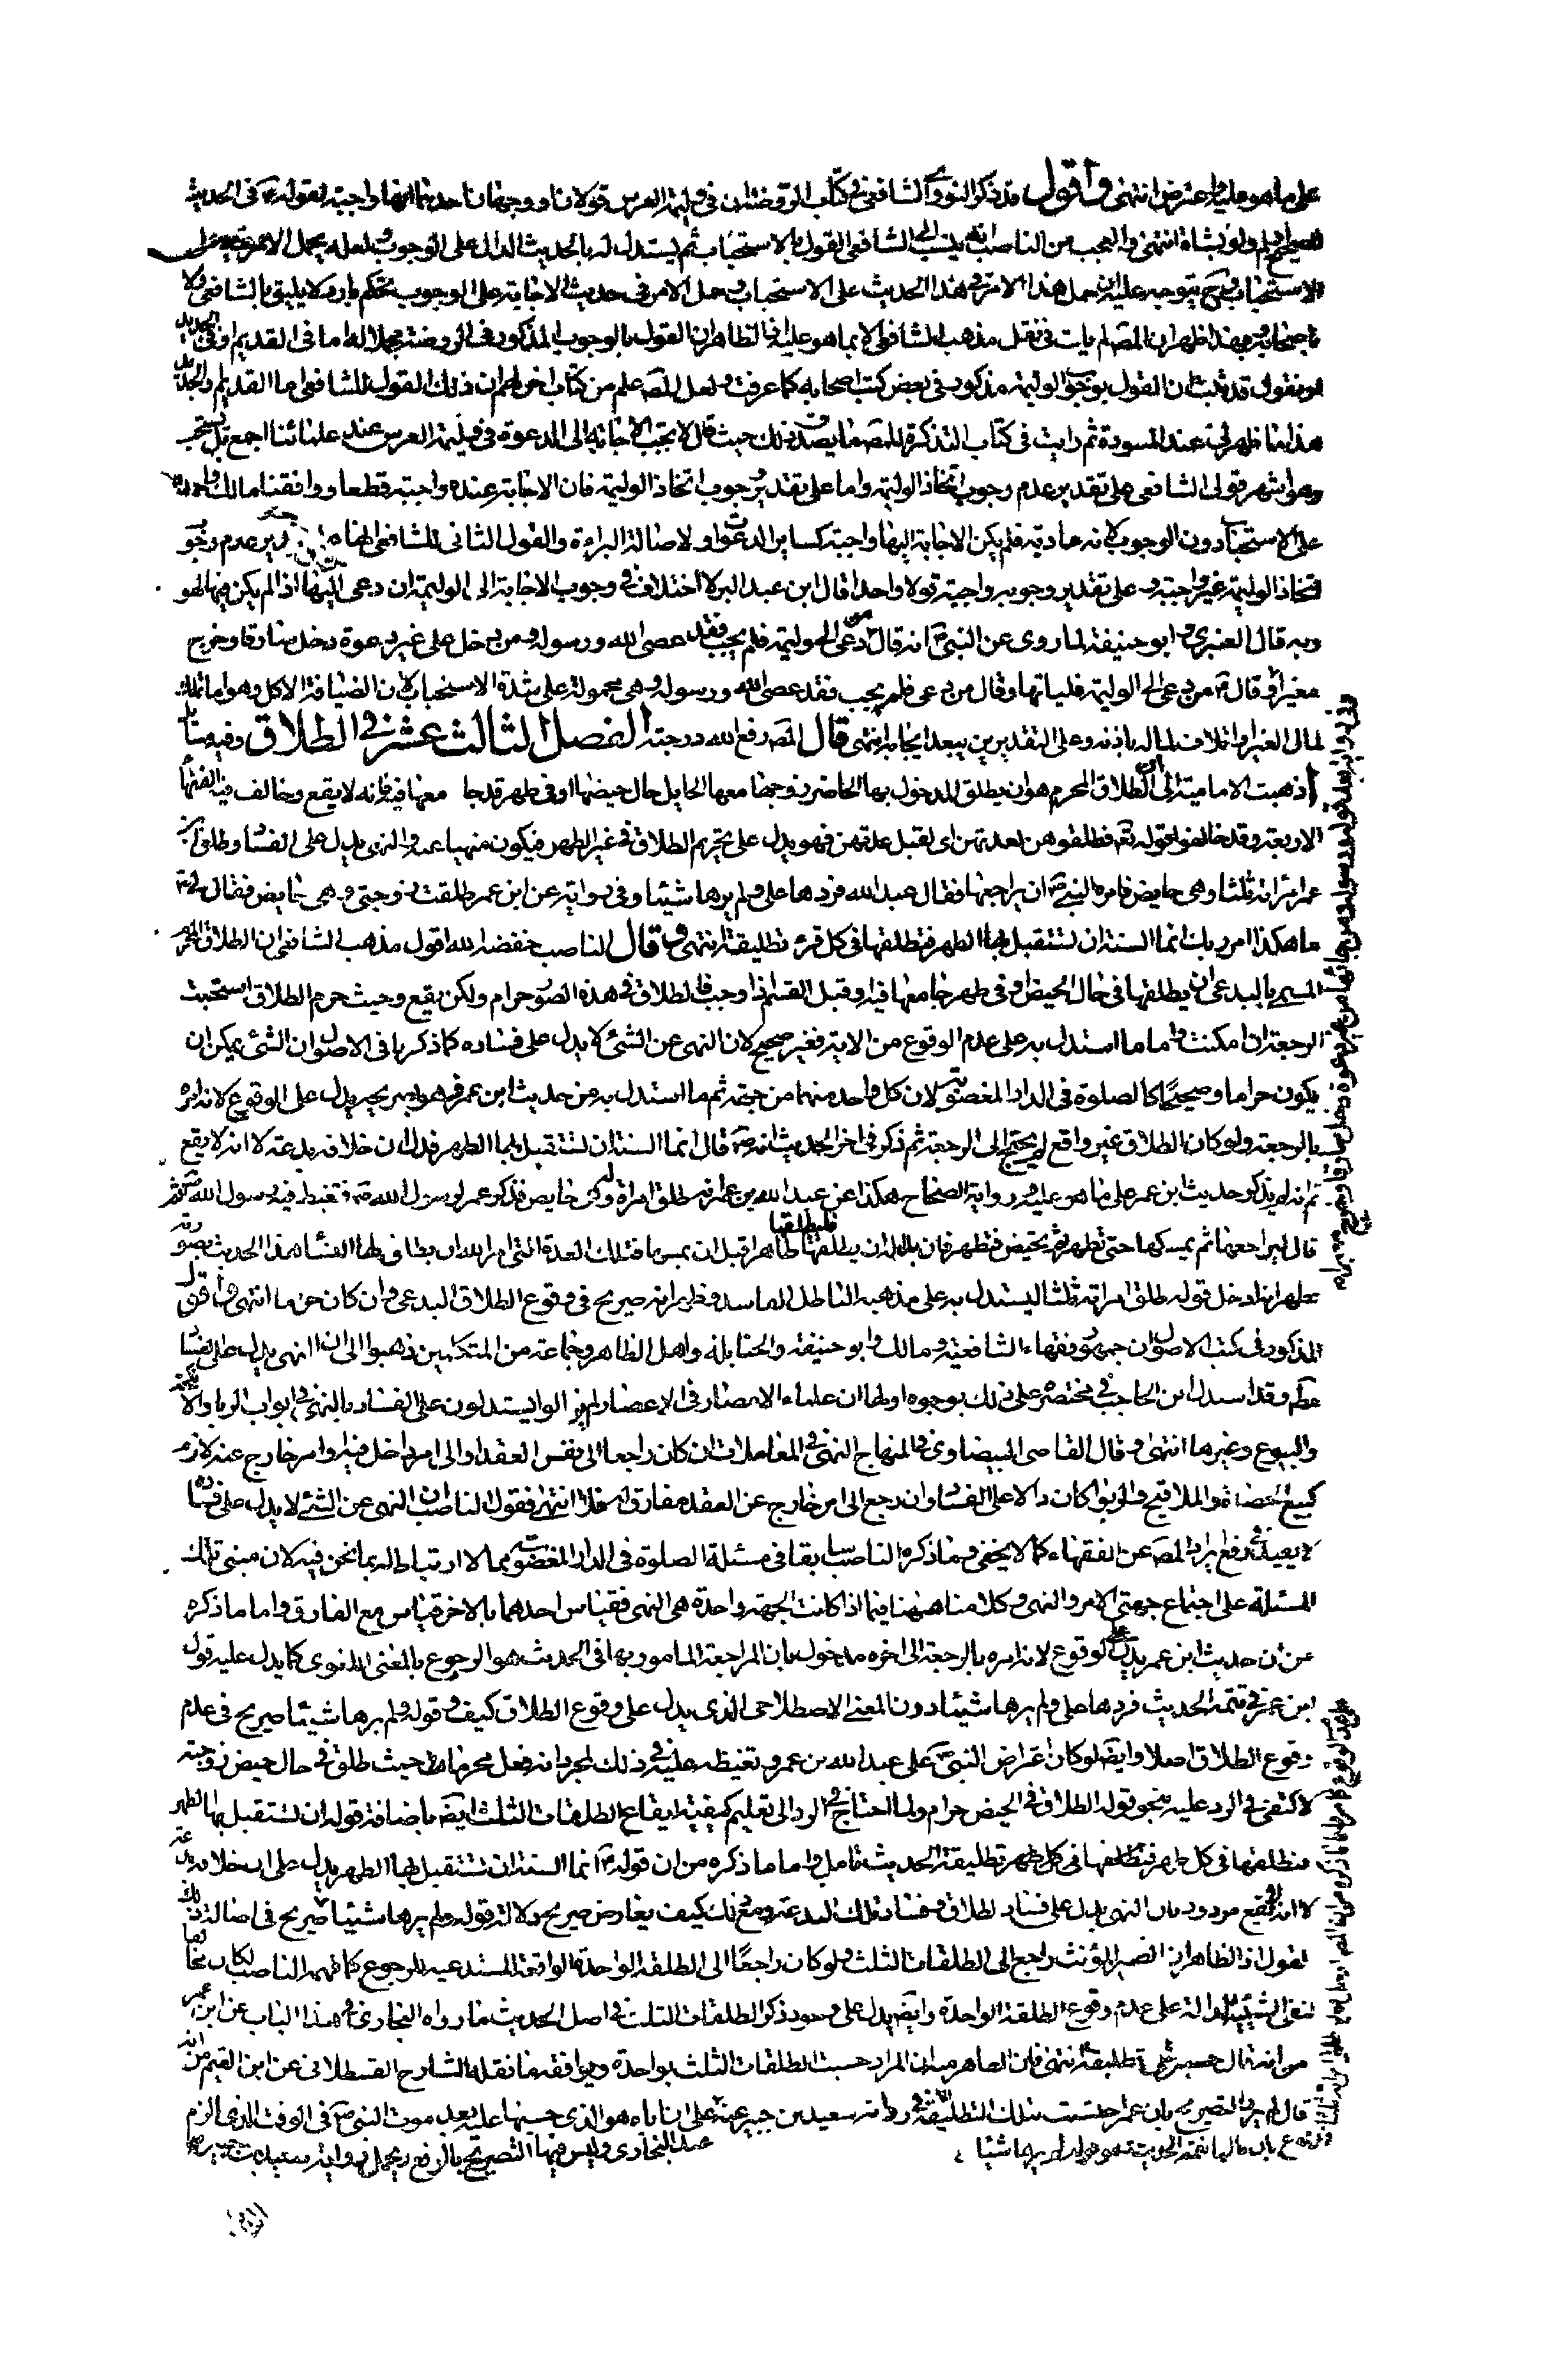 على ما هو عليه واعترض انتهى وأقول قد ذكر النووي الشافعي في كتاب الروضة ان في وليمة العرس قولان او وجهان احدهما انها واجبة لقوله في الحديث
الصحيح اولم ولو بشاة انتهى والعجب من الناصب انه ينسب الى الشافعي القول بالاستحباب ثم يستدل له بالحديث الدال على الوجوب لعله يحمل الامر فيه على
الاستحباب وح يتوجه عليه ان حمل هذا الامر في هذا الحديث على الاستحباب وحمل الامر في حديث الاجابة على الوجوب تحكم بارد لا يليق بالشافعي ولا
باصحابه وبهذا ظهر ان المص لم يات في نقل مذهب الشافعي الا بما هو عليه اذ الظاهر ان القول بالوجوب المذكور في الروضة مجملا له اما في القديم او في الجديد
او نقول قد ثبت ان القول بوجوب الوليمة مذكور في بعض كتب اصحابه كما عرفت ولعل المص علم من كتاب اخر لهم ان ذلك القول للشافعي اما القديم او الجديد
هذا ما ظهر لي عند المسودة ثم رايت في كتاب التذكرة للمص ما يصدق ذلك حيث قال لا يجب الاجابة الى الدعوة في وليمة العرس عند علمائنا اجمع بل يستحب
وهو اشهر قولي الشافعي على تقدير عدم وجوب اتخاذ الوليمة واما على تقدير وجوب اتخاذ الوليمة فان الاجابة عنده واجبة قطعا ووافقنا مالك واحمد
على الاستحباب دون الوجوب لانه عادية فلم يكن الاجابة اليها واجبة كساير الدعوات ولاصالة البراءة والقول الثاني للشافعي انها عدم وجوب
اتخاذ الوليمة غير واجبة وعلى تقدير وجوبه واجبة قولا واحدا قال ابن عبد البر لا اختلاف في وجوب الاجابة الى الوليمة ان دعى اليها اذا لم يكن فيها لهو
وبه قال العنبري وابو حنيفة لما روى عن النبي انه قال من دعى الى وليمة فلم يجب فقد عصى الله ورسوله ومن دخل على غير دعوة دخل سارقا وخرج
مغيرا وقال من دعى الى الوليمة فلياتها وقال من دعى فلم يجب فقد عصى الله ورسوله وهي محمولة على شدة الاستحباب لان الضيافة الاكل وهو اما تملك
لمال الغير او اتلاف لماله باذنه وعلى التقديرين يبعد ايجابه انتهى قال المص رفع الله درجته الفصل الثالث عشر في الطلاق وفيه مسائل
ا ذهبت الامامية الى ان الطلاق المحرم هو ان يطلق المدخول بها الحاضر زوجها معها الحايل حال حيضها او في طهر قد جامعها فيه فانه لا يقع وخالف فيه الفقهاء
الاربعة وقد خالفوا قوله تعالى فطلقوهن لعدتهن اى لقبل عدتهن فهو يدل على تحريم الطلاق في غير الطهر فيكون منهيا عنه والنهي يدل على الفساد وطلق ابن
عمر امراته ثلثا وهي حايض فامره النبي ص ان يراجعها فقال عبد الله فردها علي ولم يرها شيئا وفي رواية عن ابن عمر طلقت زوجتي وهي حايض فقال لي
ما هكذا امر ربك انما السنة ان تستقبل بها الطهر فتطلقها في كل قرء تطليقة انتهى وقال الناصب خفضه الله اقول مذهب الشافعي ان الطلاق المحرم
المسمى بالبدعي ان يطلقها في حال الحيض او في طهر جامعها فيه وقبل القسم اذا وجب فالطلاق في هذه الصور حرام ولكن يقع وحيث حرم الطلاق استحبت
الرجعة ان امكنت واما ما استدل به على عدم الوقوع من الاية فغير صحيح لان النهى عن الشئ لا يدل على فساده كما ذكرنا في الاصول ان الشئ يمكن ان
يكون حراما وصحيحا كالصلوة في الدار المغصوبة لان كل واحد منهما من جهة ثم ما استدل به من حديث ابن عمر فهو صريح يدل على الوقوع لانه امره
بالرجعة ولو كان الطلاق غير واقع لم يحتج الى الرجعة ثم ذكر في اخر الحديث انه ص قال انما السنة ان تستقبل بها الطهر فدل ان خلافه بدعة لا انه لا يقع
ثم انه لم يذكر حديث ابن عمر على ما هو عليه في رواية الصحاح هكذا عن عبد الله بن عمر انه طلق امراة له وهي حايض فذكر عمر لرسول الله ص فتغيظ فيه رسول الله ص ثم
قال ليراجعها ثم يمسكها حتى تطهر ثم تحيض فتطهر فان بدا له ان يطلقها فليطلقها طاهرا قبل ان يمسها فتلك العدة التي امر الله ان يطلق لها النساء هذا الحديث وصورته
تظهر انه ادخل قوله طلق امراته ثلثا ليستدل به على مذهبه الباطل الفاسد وظهر انه صريح في وقوع الطلاق البدعي وان كان حراما انتهى واقول
المذكور في كتب الاصول ان جمهور فقهاء الشافعية ومالك وابو حنيفة والحنابلة واهل الظاهر وجماعة من المتكلمين ذهبوا الى ان النهى يدل على فساد
وقد استدل ابن الحاجب في مختصره على ذلك بوجوه اولها ان علماء الامصار في الاعصار لم يزالوا يستدلون على الفساد بالنهى في ابواب الربا والانكحة
والبيوع وغيرها انتهى وقال القاضي البيضاوي في المنهاج النهى في المعاملات ان كان راجعا الى نفس العقد او الى امر داخل فيه او امر خارج عنه لازم
كبيع الحصاة والملاقيح والربوا كان دالا على الفساد وان رجع الى امر خارج عن العقد مفارق له فلا انتهى فقول الناصب ان النهى عن الشئ لا يدل على فساده
لا يفيد في دفع ايراد المص عن الفقهاء كما لا يخفى وما ذكره الناصب سابقا في مسئلة الصلوة في الدار المغصوبة مما لا ارتباط له بما نحن فيه لان مبنى تلك
المسئلة على اجتماع جهتي الامر والنهى وكلامنا هيهنا فيما اذا كانت الجهة واحدة هي النهى فقياس احدهما بالاخر قياس مع الفارق واما ما ذكره
من ان حديث ابن عمر يدل على الوقوع لانه امره بالرجعة الى اخره مدخول بان المراجعة المامور بها في الحديث هو الرجوع بالمعنى اللغوي كما يدل عليه قول
ابن عمر في تتمة الحديث فردها علي ولم يرها شيئا دون المعنى الاصطلاحي الذي يدل على وقوع الطلاق كيف وقوله ولم يرها شيئا صريح في عدم
وقوع الطلاق اصلا وايضا لو كان اعتراض النبي ص على عبد الله بن عمر وتغيظه عليه في ذلك لمجرد انه فعل محرما حيث طلق في حال حيض زوجته
لاكتفى في الرد عليه بنحو قوله الطلاق في الحيض حرام ولما احتاج في الرد الى تعليم كيفية ايقاع الطلقات الثلث ايضا باضافة قوله ان تستقبل بها الطهر
فتطلقها في كل طهر تطليقة الحديث تامل واما ما ذكره من ان قوله انما السنة ان تستقبل بها الطهر يدل على ان خلافه بدعة
لا انه لا يقع مردود بان النهى يدل على فساد الطلاق وفساد تلك البدعة ومع ذلك كيف يعارض صريح دلالة قوله ولم يرها شيئا صريح في اصالة
لقول اذ الظاهر ان الضمير المؤنث راجع الى الطلقات الثلث ولو كان راجعا الى الطلقة الواحدة الواقعة المستدعية للرجوع كما فهمه الناصب لكان
لنفى الشيئية دالة على عدم وقوع الطلقة الواحدة وايضا يدل على وجود ذكر الطلقات الثلث في اصل الحديث ما رواه البخاري في هذا الباب عن ابن عمر
من انه قال حسبت علي تطليقة انتهى فان الظاهر منه ان المراد حسبت الطلقات الثلث بواحدة ويوافقه ما نقله الشارح القسطلاني عن ابن القيم من انه
قال لم يرد التصريح بان عمر احتسب بتلك التطليقة الا في رواية سعيد بن جبير عنه
عند البخاري وليس فيها التصريح بالرفع